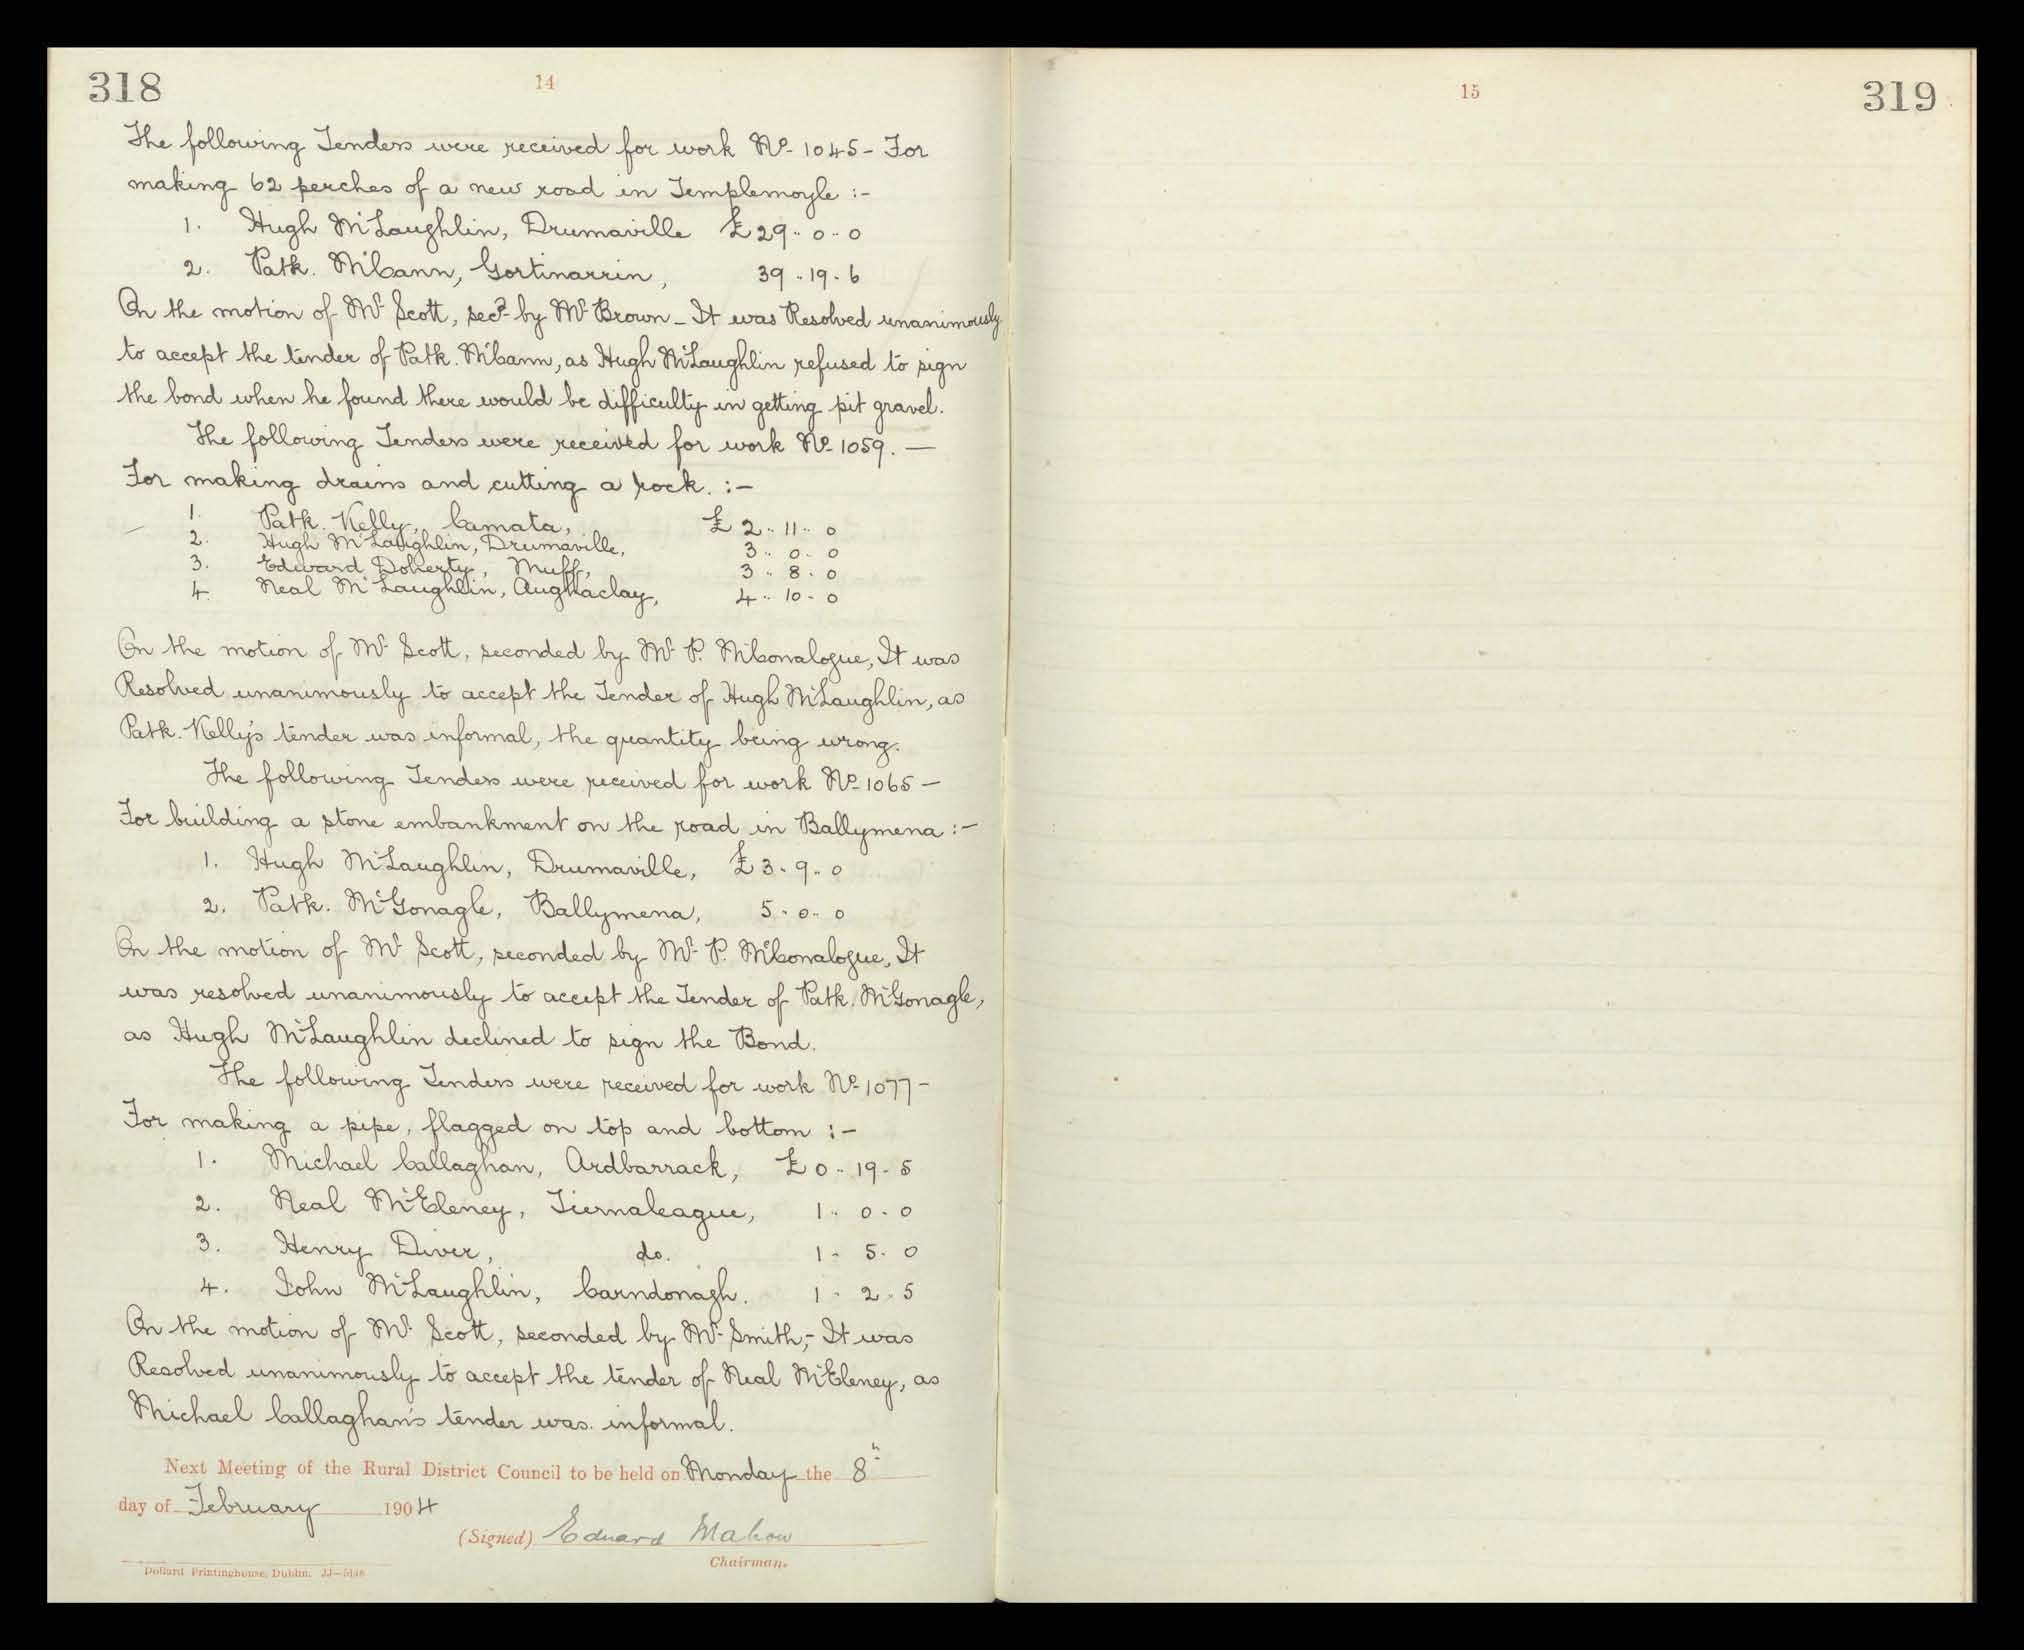 318
14
The following Tenders were received for work No. 1045 - For
making 62 perches of a new road in Templemoyle :-
1. Hugh McLaughlin, Drumaville £29 .. 0 .. 0
2. Patk. McCann, Gortinarrin, 39 .. 19 . 6
On the motion of Mr. Scott, secd. by Mr. Brown - It was Resolved unanimously
to accept the tender of Patk. McCann, as Hugh McLaughlin refused to sign
the bond when he found there would be difficulty in getting pit gravel.
The following Tenders were received for work No. 1059. —
For making drains and cutting a rock. :-
1. Patk. Kelly, Camata, £2 .. 11 .. 0
2. Hugh McLaughlin, Drumaville, 3 .. 0 . 0
3. Edward Doherty, Muff, 3 .. 8 . 0
4. Neal McLaughlin, Aughaclay, 4 .. 10 . 0
On the motion of Mr. Scott, seconded by Mr. P. McConalogue, It was
Resolved unanimously to accept the Tender of Hugh McLaughlin, as
Patk. Kelly's tender was informal, the quantity being wrong.
The following Tenders were received for work No. 1065 -
For building a stone embankment on the road in Ballymena :-
1. Hugh McLaughlin, Drumaville, £3 . 9 .. 0
2. Patk. McGonagle, Ballymena, 5 . 0 .. 0
On the motion of Mr. Scott, seconded by Mr. P. McConalogue, It
was resolved unanimously to accept the Tender of Patk. McGonagle,
as Hugh McLaughlin declined to sign the Bond.
The following Tenders were received for work No. 1077 -
For making a pipe, flagged on top and bottom :-
1. Michael Callaghan, Ardbarrack, £0 .. 19 . 5
2. Neal McEleney, Tiernaleague, 1 .. 0 . 0
3. Henry Diver, do. 1 . 5 . 0
4. John McLaughlin, Carndonagh. 1 . 2 . 5
On the motion of Mr. Scott, seconded by Mr. Smith, - It was
Resolved unanimously to accept the tender of Neal McEleney, as
Michael Callaghan's tender was informal.
Next Meeting of the Rural District Council to be held on Monday the 8th
day of February 1904
(Signed) Edward Mahon
Chairman.
Dollard Printinghouse, Dublin. JJ—5148
15
319